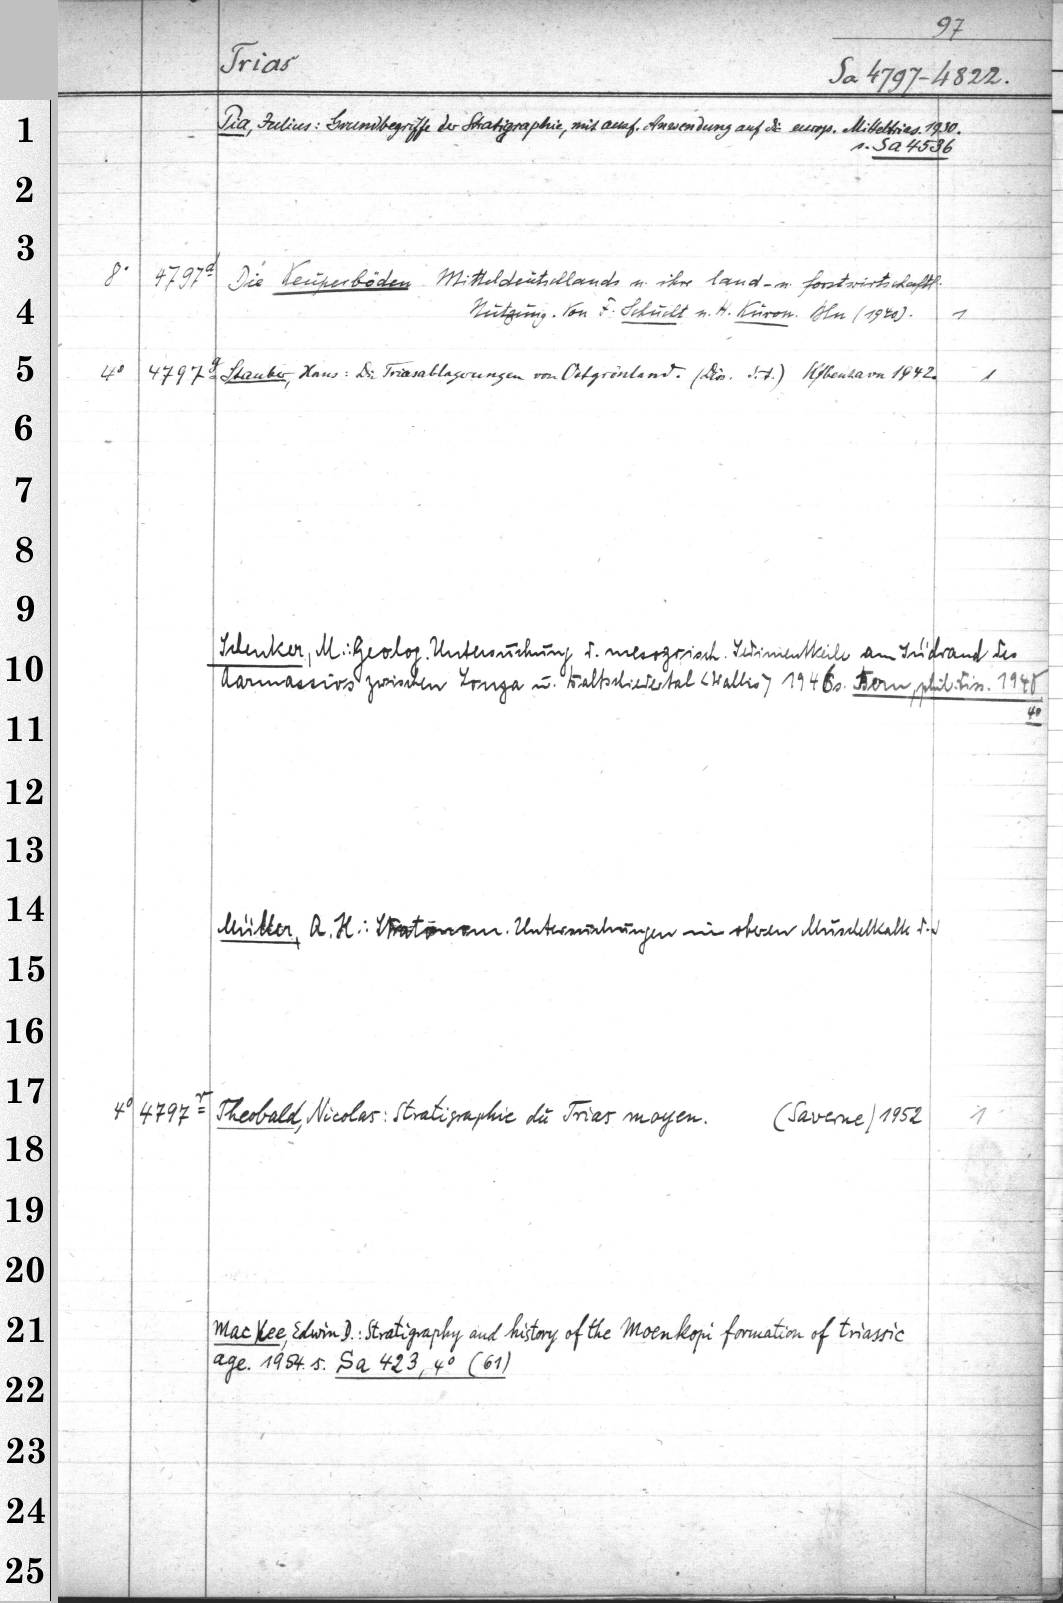 97
Trias
Sa 4797-4822.
1
Pia, Julius: Grundbegriffe der Stratigraphie, mit ausf. Anwendung auf die europ. Mitteltrias. 1930.
s. Sa 4536
2
3
8° 4797d Die Keuperböden Mitteldeutschlands u. ihre land- u. forstwirtschaftl.
4
Nutzung. Von F. Schucht u. H. Kuron. Bln (1940). 1
5
4° 4797g Stauber, Hans: Die Triasablagerungen von Ostgrönland. (Diss. ) København 1942. 1
6
7
8
9
Schenker, M.: Geolog. Untersuchung d. mesozoisch. Sedimentkeile am Südrand des
10
Aarmassivs zwischen Lonza u. Baltschiedertal <Wallis> 1946 s. Bern, phil. Diss. 1948
4°
11
12
13
14
Müller, A. H.: Stratonom. Untersuchungen im oberen Muschelkalk d.
15
16
17
4° 4797r Theobald, Nicolas: Stratigraphie du Trias moyen. (Saverne) 1952 1
18
19
20
21
Mac Kee, Edwin D.: Stratigraphy and history of the Moenkopi formation of triassic
age. 1954. s. Sa 423, 4° (61)
22
23
24
25